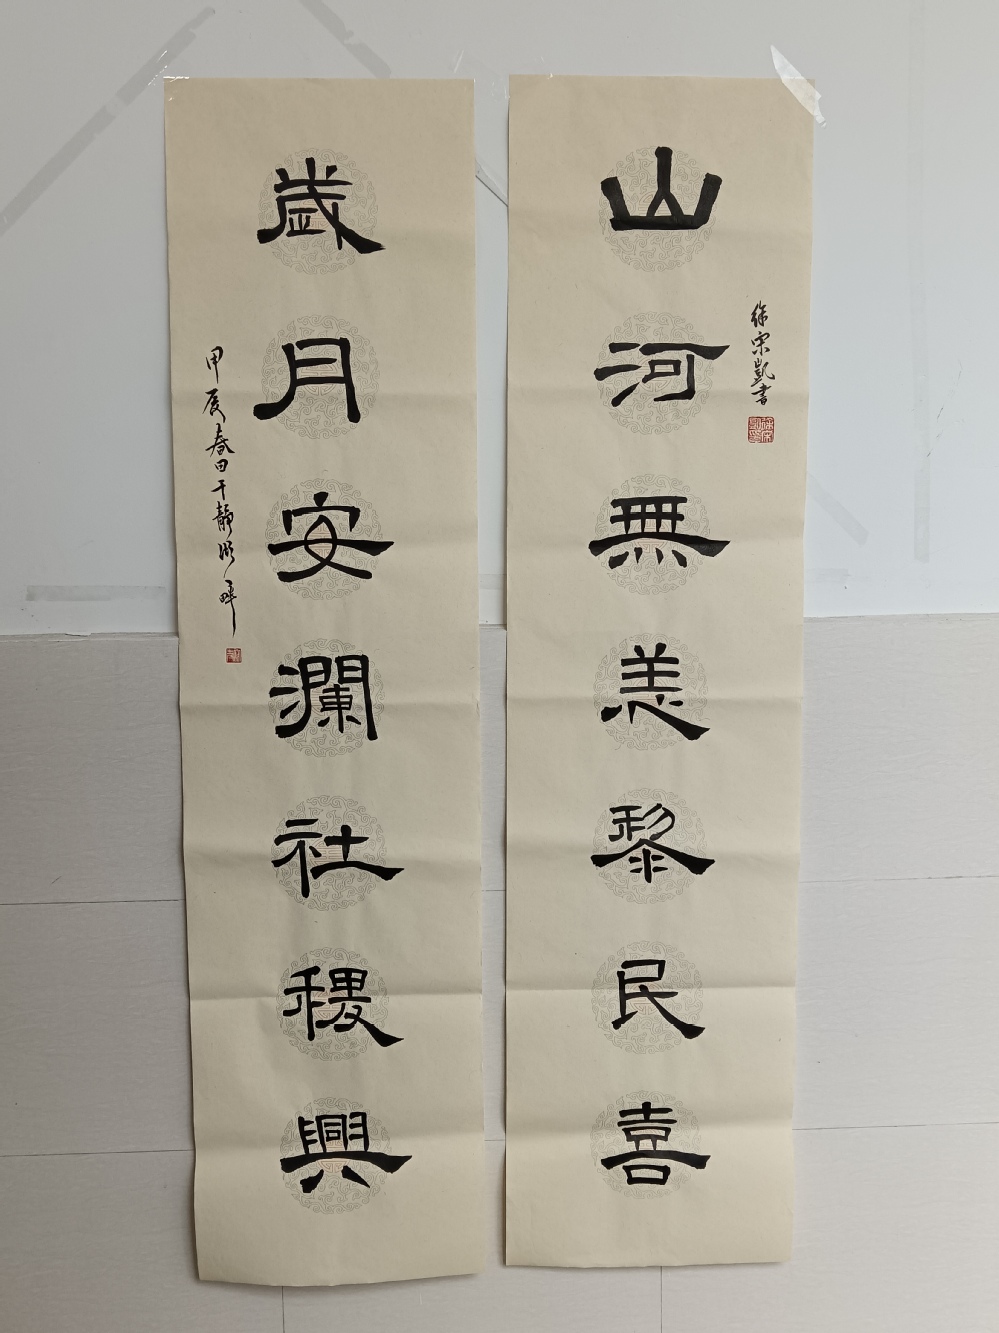 山河無恙黎民喜
徐宗凱書
歲月安瀾社稷興
甲辰春日于靜